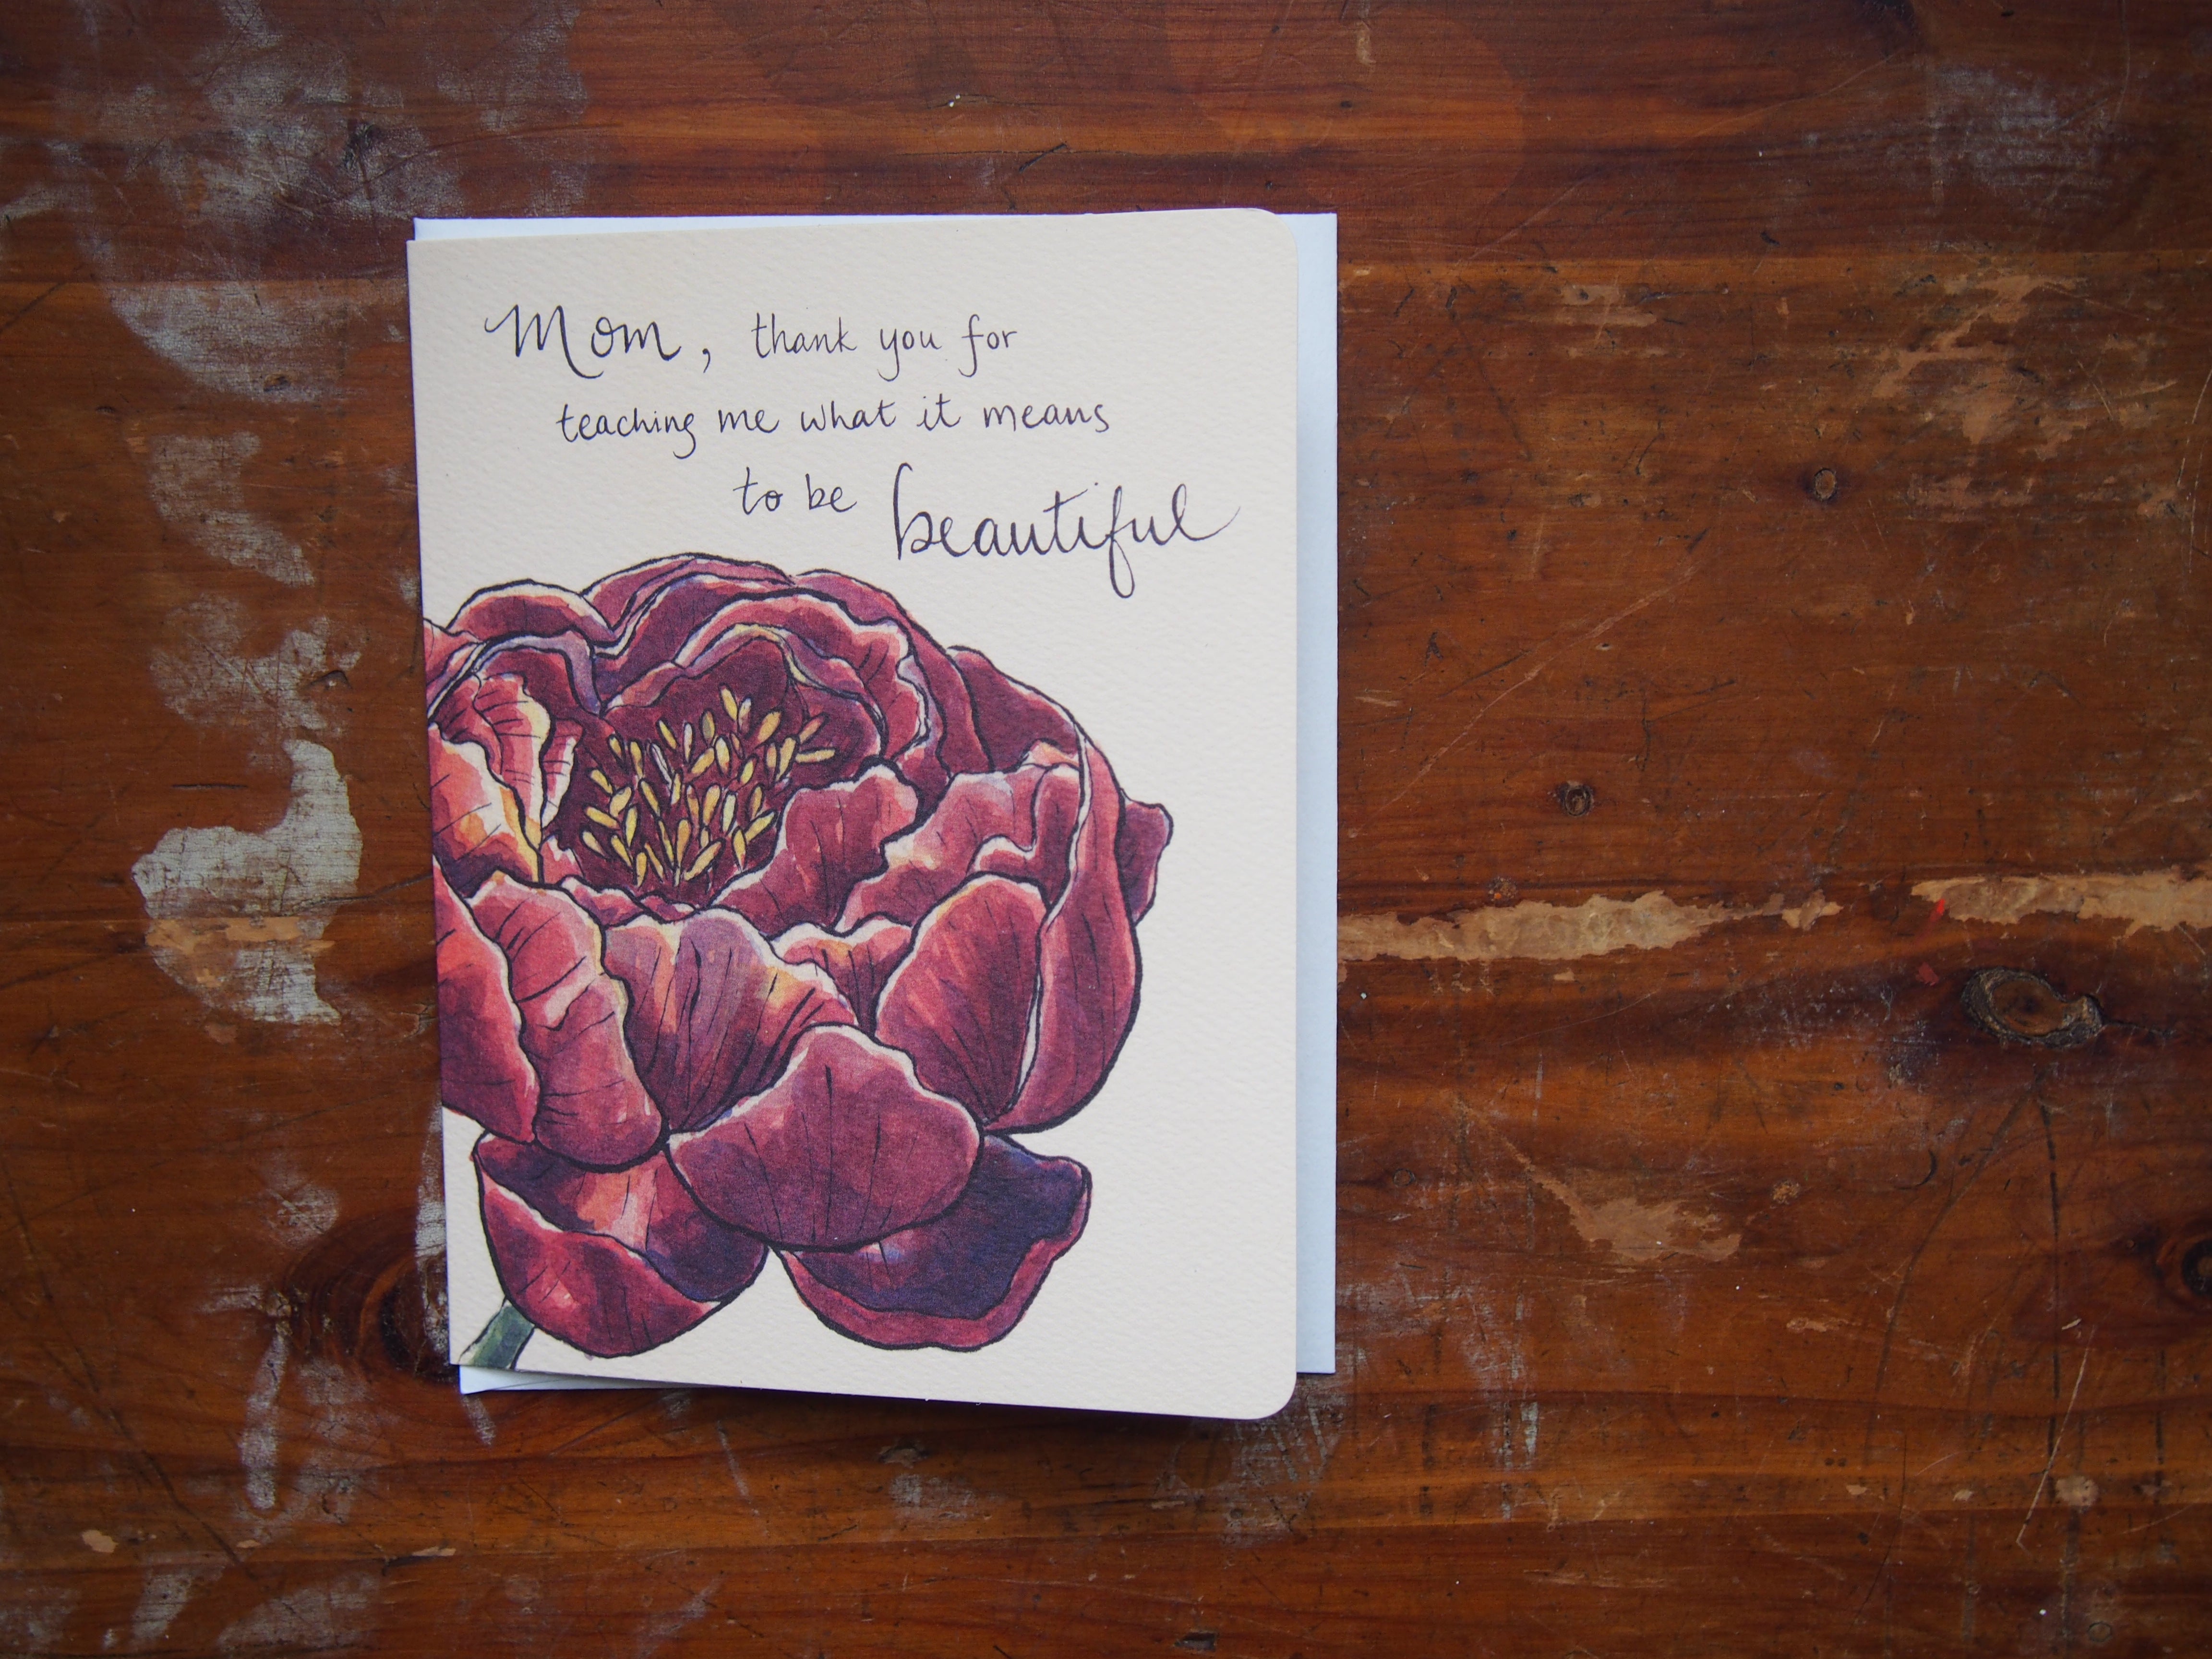 Mom, thank you for
teaching me what it means
to be beautiful